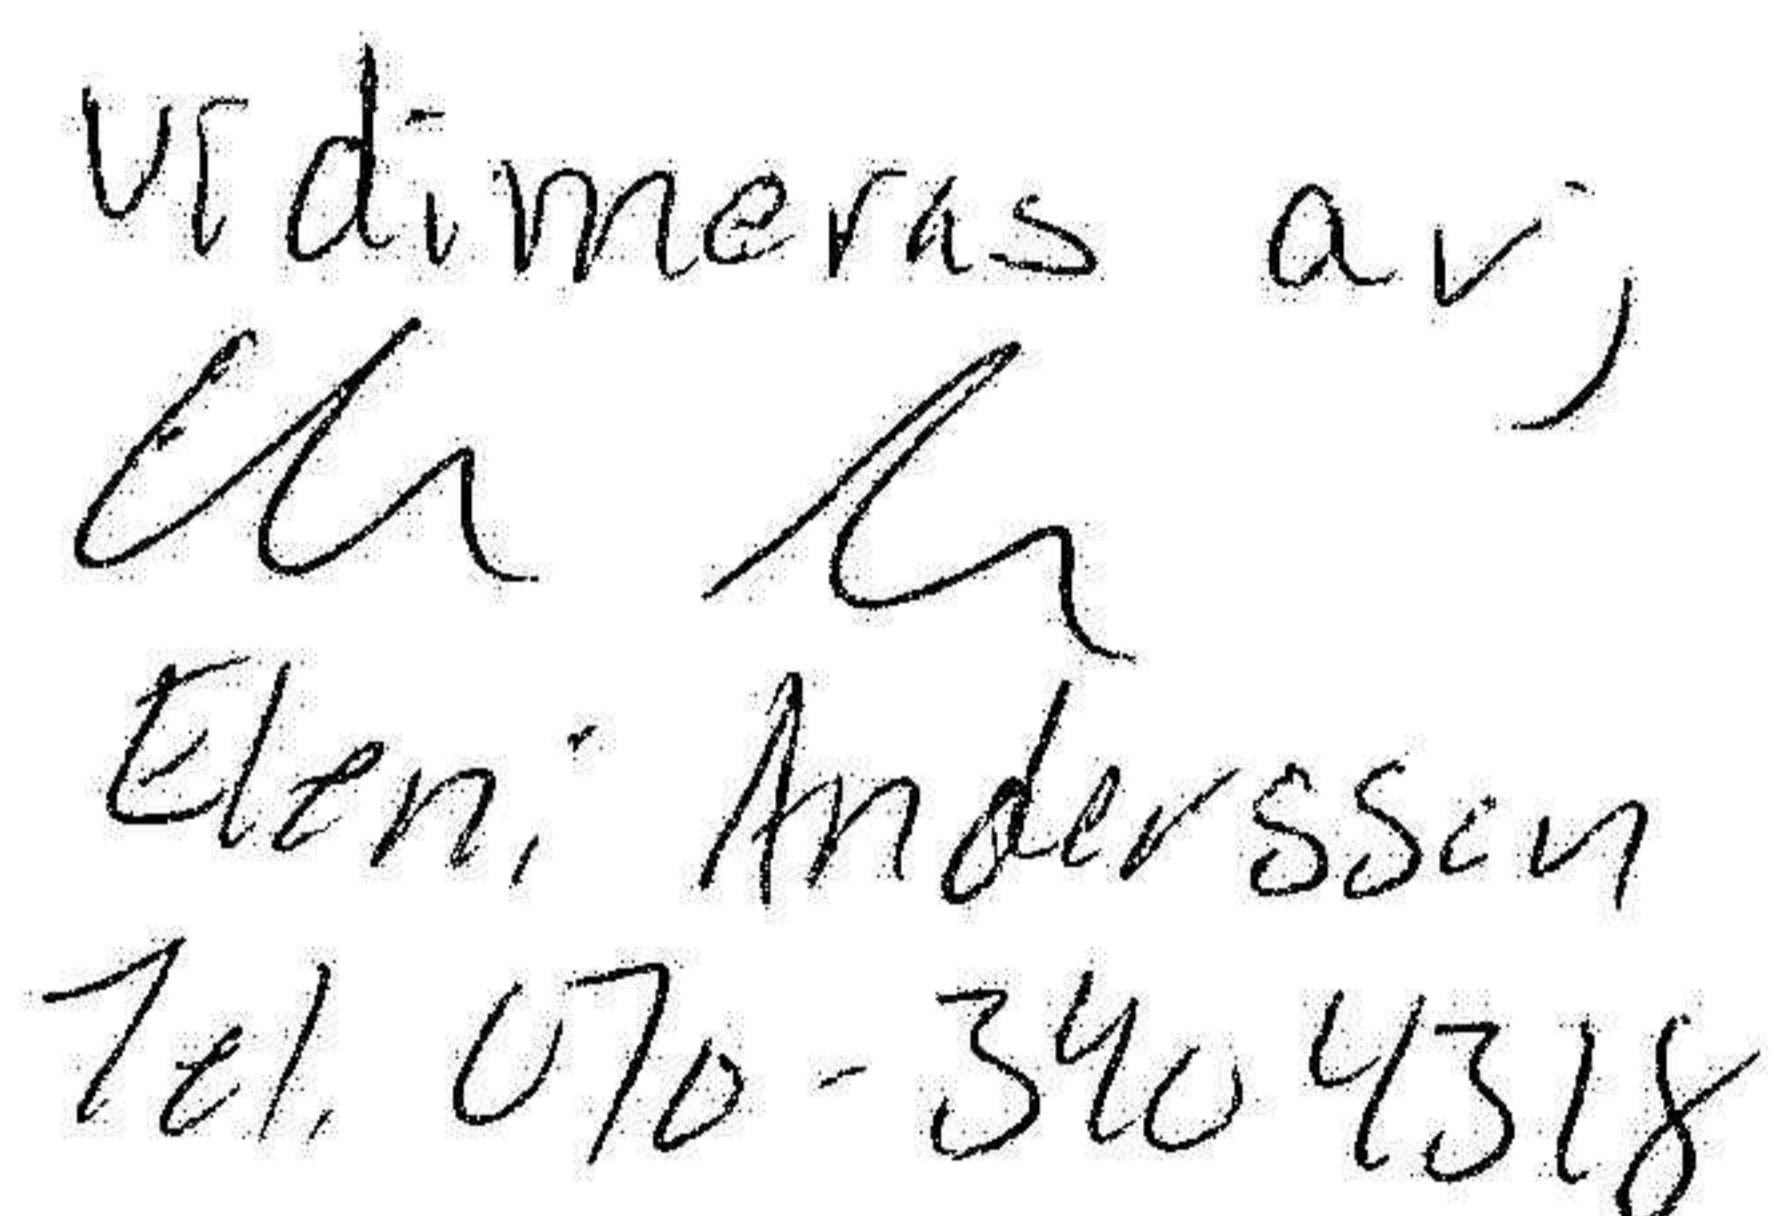 Vidimeras av;
Eleni Anderssen
Tel. 070-340 4318